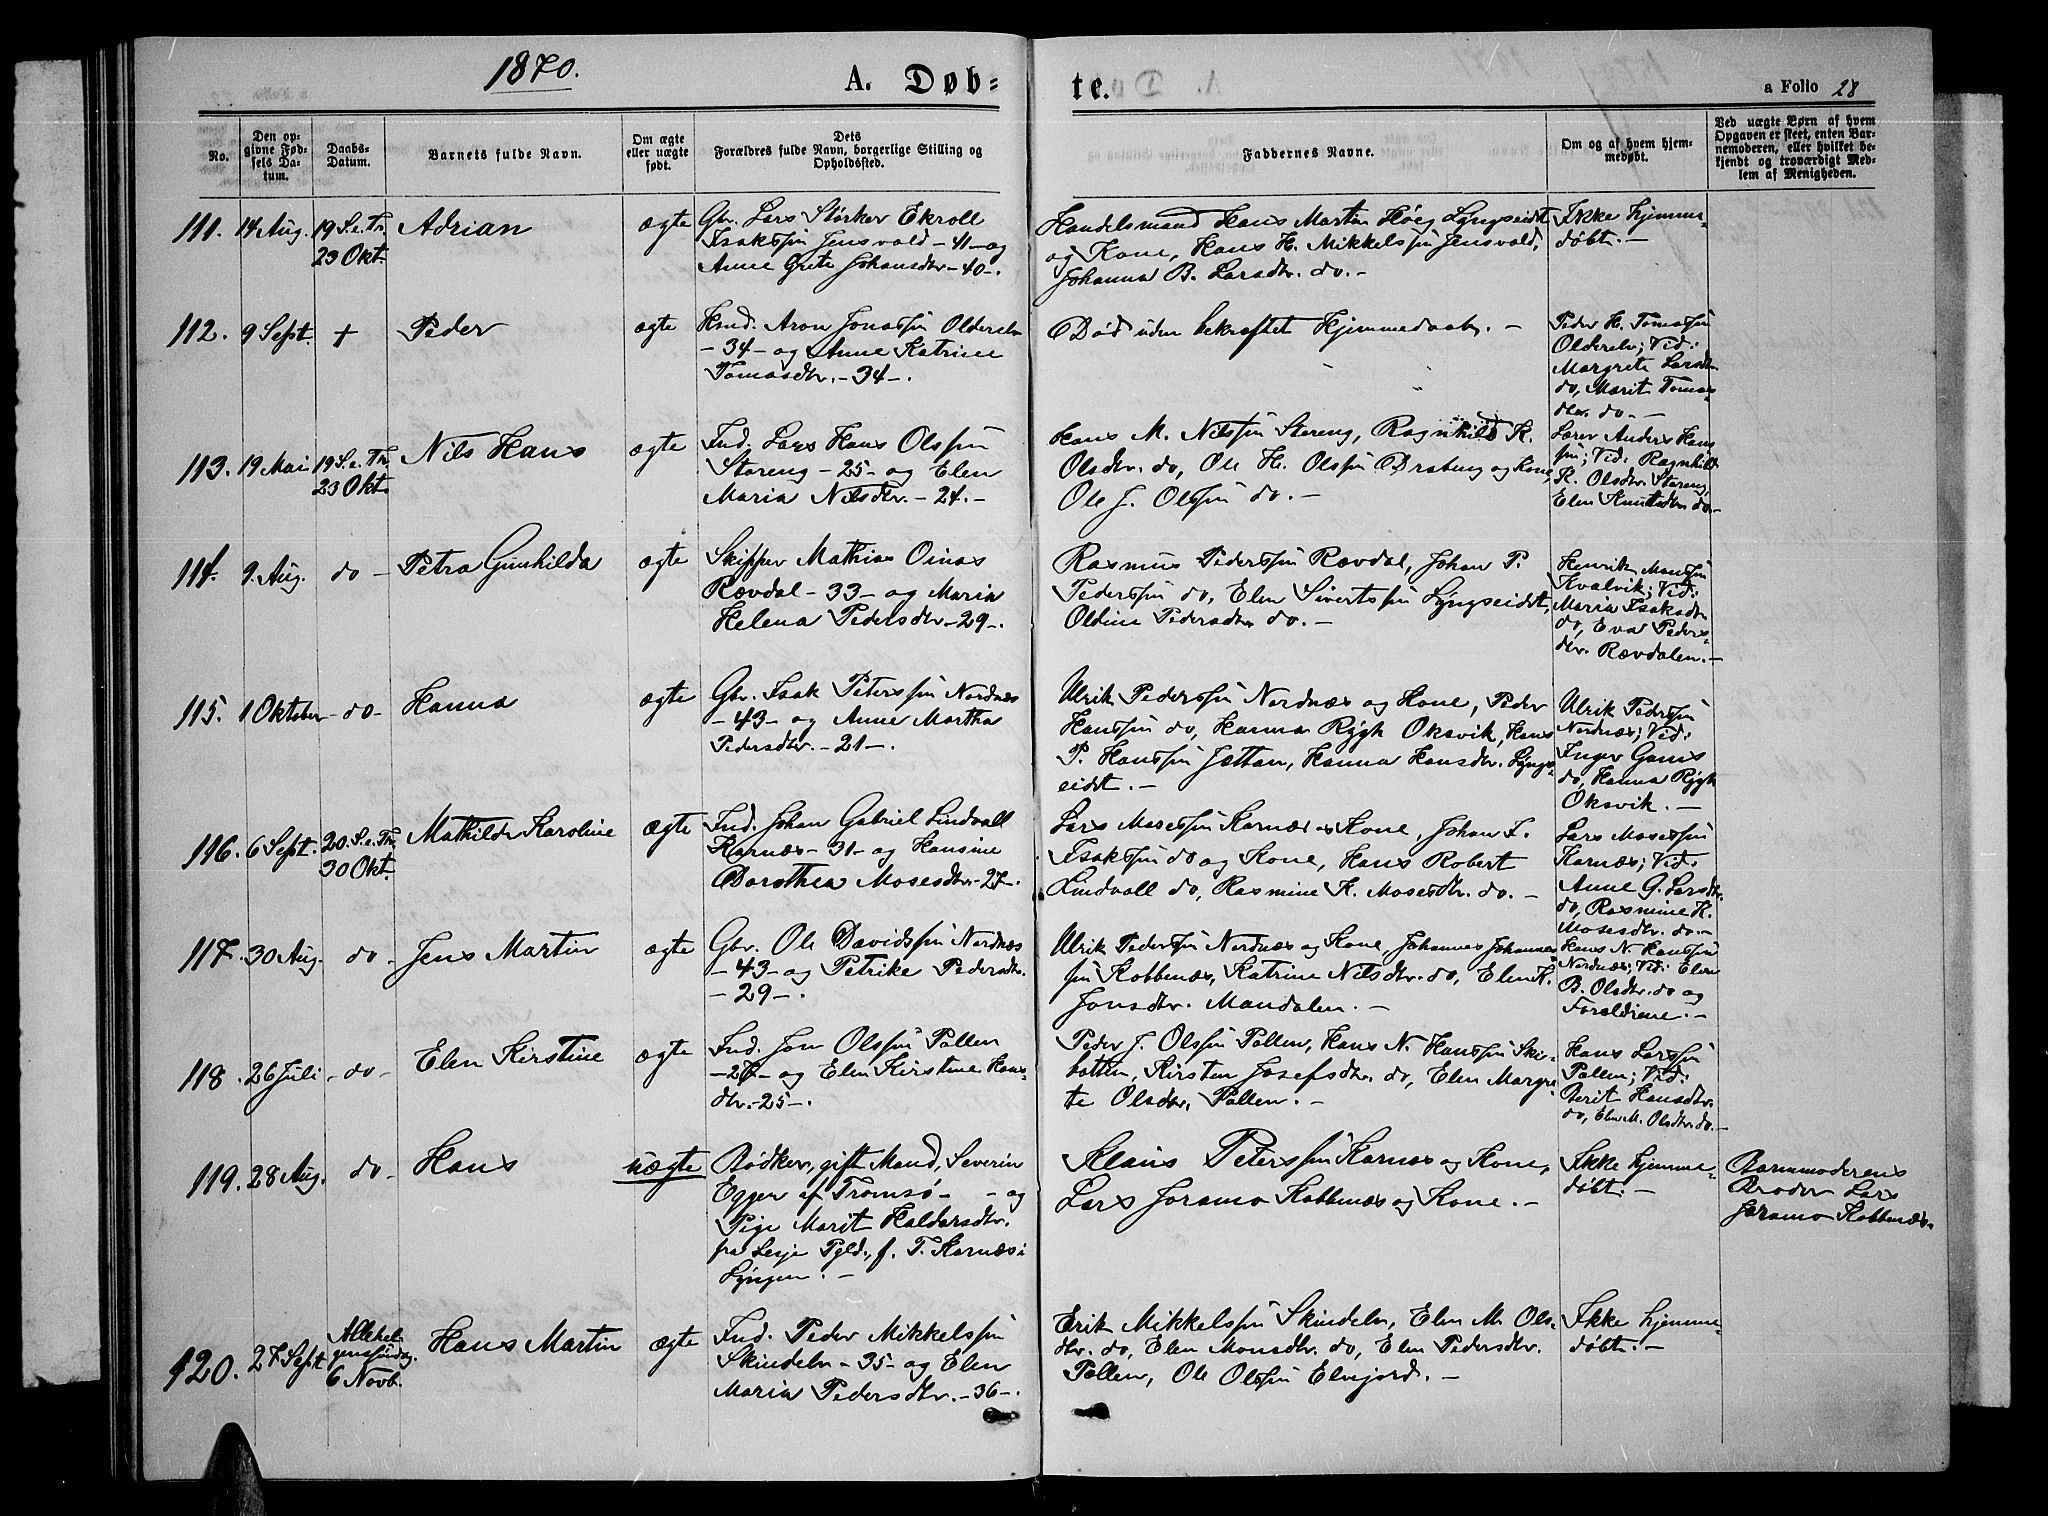 1870.
A. Døb=
te.
a Folio 28
No.
Den op=
givne Fød=
sels Da=
tum.
Daabs=
Datum.
Barnets fulde Navn.
Om ægte
eller uægte
født.
Dets
Forældres fulde Navn, borgerlige Stilling og
Opholdssted.
Faddernes Navne.
Om og af hvem hjem=
medøbt.
Ved uægte Børn af hvem
Opgaven er skeet, enten Bar=
nemoderen, eller hvilket be=
kjendt og troværdigt Med=
lem af Menigheden.
111. 14 Aug. 19 S. e. Tr.
23 Okt.
Adrian
ægte
Gbr. Lars Størker Ekroll
Isakssøn Jensvold - 41 - og
Anne Grete Johansdtr. - 40 -.
Handelsmand Hans Martin Høeg Lyngseidt
og Kone, Hans H. Mikkelssøn Jensvold,
Johanna B. Larsdtr. do. -
Ikke hjemme=
døbt. -
112. 9 Sept. +
Peder
ægte
Hmd. Aron Jonassøn Olderelv
- 34 - og Anne Katrine
Tomasdtr. - 34 -.
Død uden bekræftet Hjemmedaab. -
Peder H. Tomassøn
Olderelv; Vid:
Margrete Larsdtr.
do, Marit Tomas=
dtr. do. -
113. 19 Mai 19 S. e. Tr.
23 Okt.
Nils Hans
ægte
Ind. Lars Hans Olssøn
Storeng - 25 - og Elen
Maria Nilsdtr. - 24. -
Hans M. Nilssøn Storeng, Ragnhild K.
Olsdtr. do, Ole H. Olssøn Draberg og Kone,
Ole J. Olssøn do. -
Lærer Anders Hans=
søn; Vid: Ragnhild
K. Olsdtr. Storeng,
Elen Knutsdtr. do. -
114. 9. Aug. do -
Petra Gunhilda
ægte
Skipper Mathias Oinas
Rævdal - 33 - og Maria
Helena Pedersdtr. - 29 -.
Rasmus Pederssøn Rævdal, Johan P.
Pederssøn do, Elen Sivertssøn Lyngseidt,
Oldine Pedersdtr. do. -
Henrik Monssøn
Kvalvik; Vid:
Maria Isaksdtr.
do, Eva Peders=
dtr. Rævdalen. -
115. 1 Oktober - do -
Hanna
ægte
Gbr. Isak Peterssøn Nordnæs
- 43 - og Anne Martha
Pedersdtr. - 21 -.
Ulrik Pederssøn Nordnæs og Kone, Peder
Hanssøn do, Hanna Rÿgh Oksvik, Hans
P. Hanssøn Jøttan, Hanna Hansdtr. Lyngs=
eidt. -
Ulrik Pederssøn
Nordnæs; Vid:
Inger Gams
do, Hanna Rÿgh
Oksvik. -
116. 6 Sept. 20. S. e. Tr.
30 Okt.
Mathilde Karoline
ægte
Ind. Johan Gabriel Lindvall
Karnæs - 31 - og Hansine
Dorothea Mosesdtr. - 27 -.
Lars Mosessøn Karnæs og Kone, Johan I.
Isakssøn do og Kone, Hans Robert
Lindvall do, Rasmine K. Mosesdtr. do. -
Lars Mosessøn
Karnæs; Vid:
Anne G. Larsdtr.
do, Rasmine K.
Mosesdtr. do. -
117. 30 Aug. do -
Jens Martin
ægte
Gbr. Ole Davidssøn Nordnæs
- 43 - og Petrike Pedersdtr.
- 29 -.
Ulrik Pederssøn Nordnæs og Kone, Johannes Johannes=
søn Kobbenæs, Katrine Nilsdtr. do, Elen K.
Jonsdtr. Mandalen. -
Hans N. Hanssøn
Nordnæs; Vid: Elen
B. Olsdtr. do og
Forældrene. -
118. 26 Juli - do -
Elen Kirstine
ægte
Ind. Jon Olssøn Pollen
- 27 - og Elen Kirstine Hans=
dtr. - 25 -.
Peder J. Olssøn Pollen, Hans N. Hanssøn Ski=
botten, Kirsten Josefsdtr. do, Elen Margre=
te Olsdtr. Pollen. -
Hans Larssøn
Pollen; Vid:
Berit Hansdtr.
do, Elen M. Olsdtr. do. -
119. 28 Aug. do
Hans
uægte
Bødker, gift Mand, Severin
Eggen af Tromsø - - og
Pige Marit Haldorsdtr.
fra Lesje Pgld., f. T. Karnæs i
Lyngen. -
Klaus Peterssøn Karnæs og Kone,
Lars Joramo Kobbenæs og Kone. -
Ikke hjemme=
døbt. -
Barnmoderens
Broder Lars
Joramo Kobbenæs.
120. 27 Sept. Allehel=
genssøndag.
6 Novb.
Hans Martin
ægte
Ind. Peder Mikkelssøn
Skindelv - 35 - og Elen
Maria Pedersdtr. - 36 -.
Erik Mikkelssøn Skindelv, Elen M. Ols=
dtr. do, Elen Monsdtr. do, Elen Pedersdtr.
Pollen, Ole Olssøn Elvejord. -
Ikke hjemme=
døbt. -